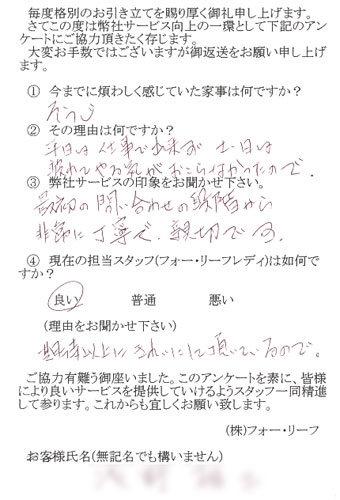 毎度格別のお引き立てを賜り厚く御礼申し上げます。
さてこの度は弊社サービス向上の一環として下記のアン
ケートにご協力頂きたく存じます。
大変お手数ではございますが御返送をお願い申し上げ
ます。
① 今までに煩わしく感じていた家事は何ですか？
そうじ
② その理由は何ですか？
平日は仕事で出来ず 土日は
疲れてやる気がおこらなかったので．
③ 弊社サービスの印象をお聞かせ下さい。
最初の問い合わせの段階から
非常に丁寧で、親切です。
④ 現在の担当スタッフ(フォー・リーフレディ)は如何で
すか？
良い 普通 悪い
(理由をお聞かせ下さい)
期待以上にきれいにして頂いているので。
ご協力有難う御座いました。このアンケートを素に、皆様
により良いサービスを提供していけるようスタッフ一同精進
して参ります。これからも宜しくお願い致します。
(株)フォー・リーフ
お客様氏名(無記名でも構いません)